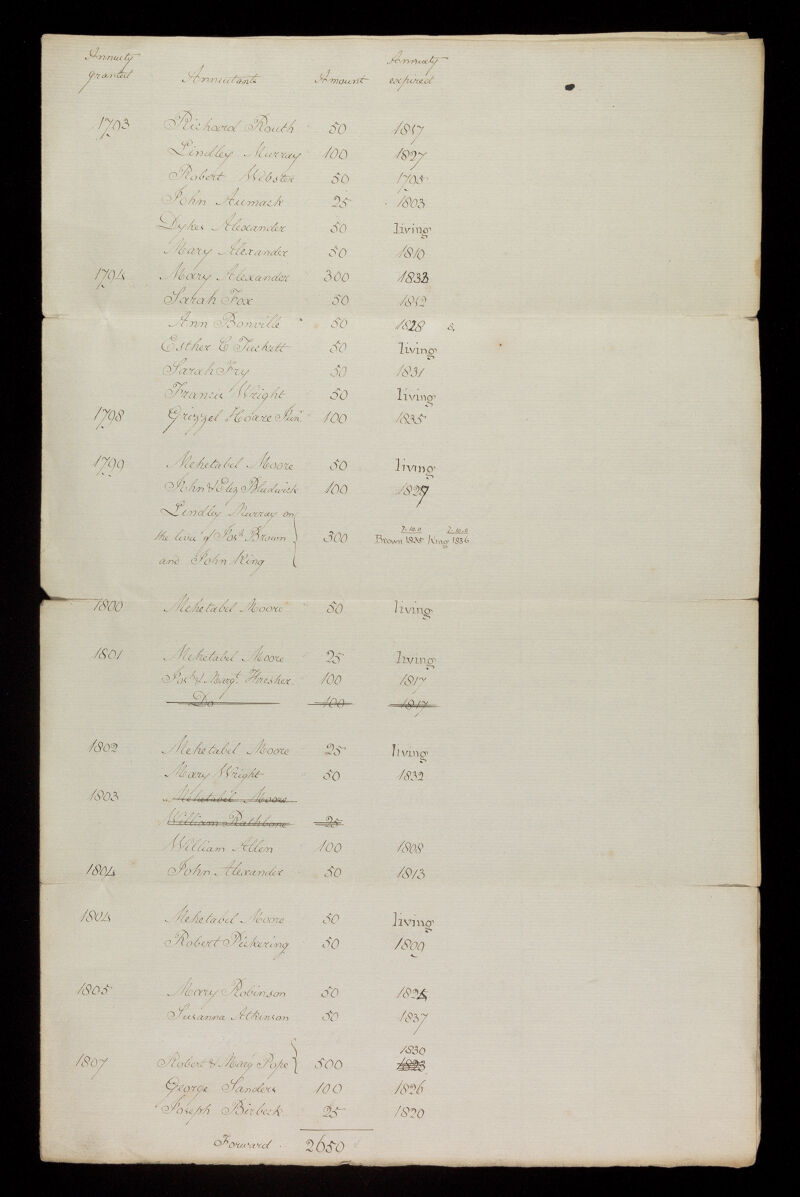 Annuity Annuity
granted Annuitants Amount expired
1793 Richard Routh 50 1817
Lindley Murray 100 1827
Robert Webster 50 1795
John Aumack 25 1803
Dykes Alexander 50 living
Mary Alexander 50 1810
1794 Mary Alexander 300 1833
Sarah Fox 50 1812
Ann Bonville 50 1828 8.
Esther C Tuckett 50 living
Sarah Fry 50 1831
Francis Wright 50 living
1798 Grizzel Hoare Jun. 100 1835
1799 Mehetabel Moore 50 living
John & Eliz Bludwick 100 1827
Lindley Murray on
the lives of Jos.h Brown 300 Brown 1835 King 1836
and John King
1800 Mehetabel Moore 50 living
1801 Mehetabel Moore 25 living
Jos.h & Marg.t Thresher 100 1817
Do 100 1817
1802 Mehetabel Moore 25 living
Mary Wright 50 1832
1803 Mehetabel Moore
William Rathbone 25
William Allen 100 1808
1804 John Alexander 50 1813
1804 Mehetabel Moore 50 living
Robert Pickering 50 1809
1805 Mary Robinson 50 1825
Susanna Atkinson 50 1837
1830
1807 Robert & Marg.t Pope 500 1823
George Sanders 100 1826
Joseph Birbeck 25 1820
Forward . 2650